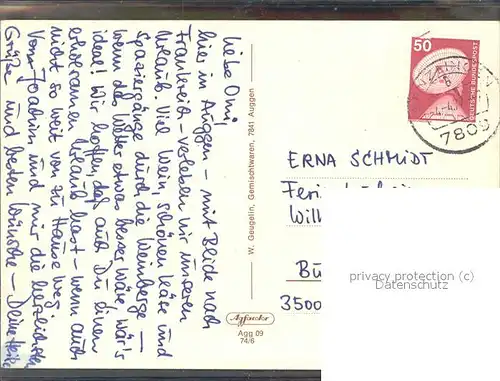 Liebe Omi,
hier in Auggen – mit Blick nach
Frankreich – verleben wir unseren
Urlaub. Viel Wein, schönen Käse und
Spaziergänge durch die Weinberge –
wenn das Wetter etwas besser wäre, wär's
ideal! Wir hoffen, daß auch Du einen
erholsamen Urlaub hast – wenn auch
nicht so weit von zu Hause weg.
Von Joachim und mir die herzlichsten
Grüße und besten Wünsche – Deine
W. Geugelin, Gemischtwaren, 7841 Auggen
50
DEUTSCHE BUNDESPOST
ERNA SCHMIDT
Will
Bü
3500
privacy protection (c)
Datenschutz
Agg 09
74/6